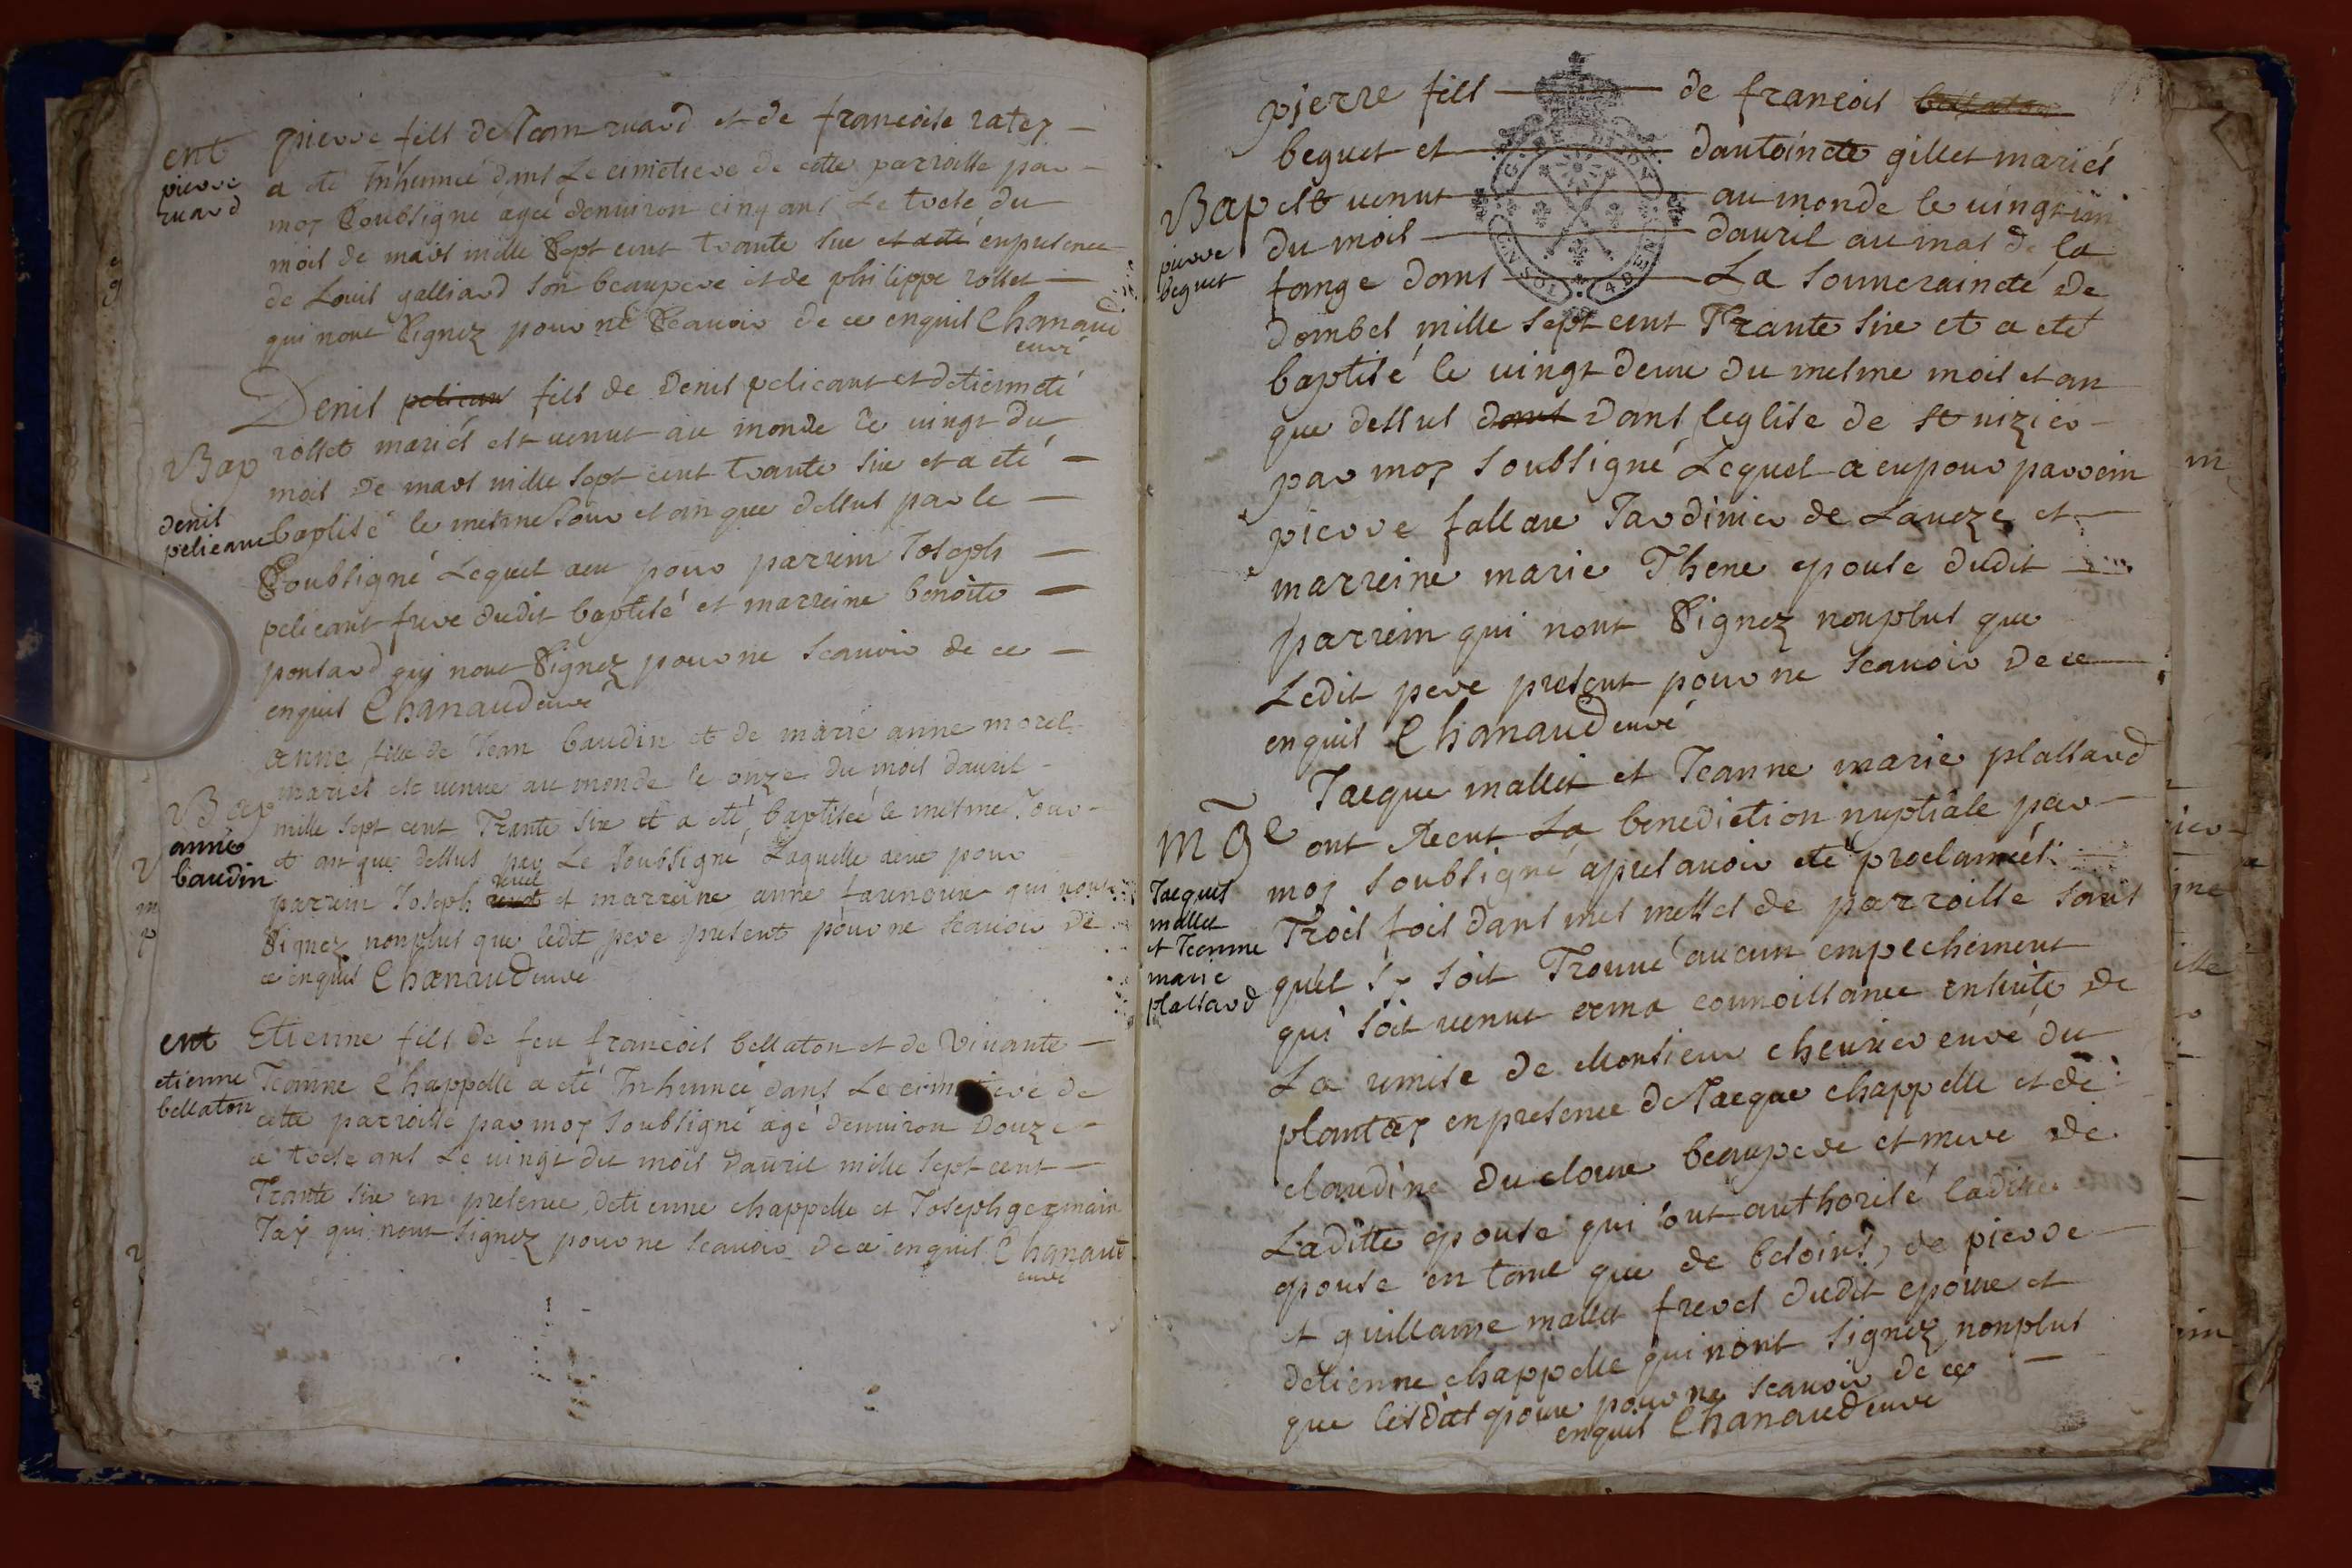 ent
pierre
ruard
pierre fils de Jean ruard et de francoise ratey
a eté Inhumeé dans Le cimetiere de cette parroisse par
moy Soubsigné ageé denuiron cinq ans Le treise du
mois de mars mille Sept cent trante six et acté enpresence
de Louis galliard son beaupere et de philippe rosset
qui nont Signez pour ne Scauoir de ce enquis Chanaud
curé
Denis pelican fils de Denis pelicant et detiennete
Bap
denis
pelicant
rosset mariés est uenut au monde le uingt du
mois de mars mille sept cent trante six et a eté
baptisé le mesme Jour et an que dessus par le
Soubsigné Lequel aeu pour parrein Joseph
pelicant frere dudit baptisé et marreine benoite
ponsard quy nont Signez pour ne scauoir de ce
enquis Chanaud curé
Bap
anne
baudin
anne fille de Jean baudin et de marie anne morel
mariés est uenue au monde le onze du mois dauril
mille sept cent Trante six et a eté baptiseé le mesme Jour
et an que dessus par Le Soubsigné Laquelle aeue pour
parrein Joseph et marreine anne qui nont
Signez nonplus que ledit pere present pour ne scauoir de
ce enquis Chanaud curé
ent
etienne
bellaton
Etienne fils de feu francois bellaton et de viuante
Jeanne Chappelle a eté Inhumeé dans Le cimetiere de
cette parroisse par moy Soubsigné agé denuiron Douze
a treise ans Le uingt du mois dauril mille sept cent
Trante six en presence detienne chappelle et Joseph germain
Jay qui nont signez pour ne scauoir de ce enquis Chanaud
curé
pierre fils de francois bellaton
beguet et dantoinete gillet mariés
Bap
pierre
beguet
est uenut au monde le uingt un
du mois dauril au mas de la
fange dans La Souueraineté De
Dombes mille sept cent Trante six et a eté
baptisé le uingt deux du mesme mois et an
que dessus dans Dans leglise de st nizier
par moy Soubsigné Lequel a eu pour parrein
pierre fallaux Jardinier de Laueze et
marreine marie Thene epouse dudit
parrein qui nont Signez nonplus que
Ledit pere present pour ne scauoir De ce
enquis Chanaud curé
mge
Jacques
mallet
et Jeanne
marie
plassard
Jacque mallet et Jeanne marie plassard
ont Recut La benediction nuptiale par
moy soubsigné apres auoir eté proclameés
Trois fois dans mes messes de parroisse sans
quil sy soit Trouué aucun empechement
qui soit uenut a ma connoissance ensuite de
La remise de Monsieur cheurier curé du
plantay enpresence de Jacque chappelle et de
claudine Ducloux beaupere et mere de
Laditte epouse qui ont authorisé ladite
epouse en tant que de besoins, de pierre
et guillaume mallet freres dudit epoux et
detienne chappelle qui nont signez nonplus
que lesdits epoux pour ne scauoir de ce
enquis Chanaud curé